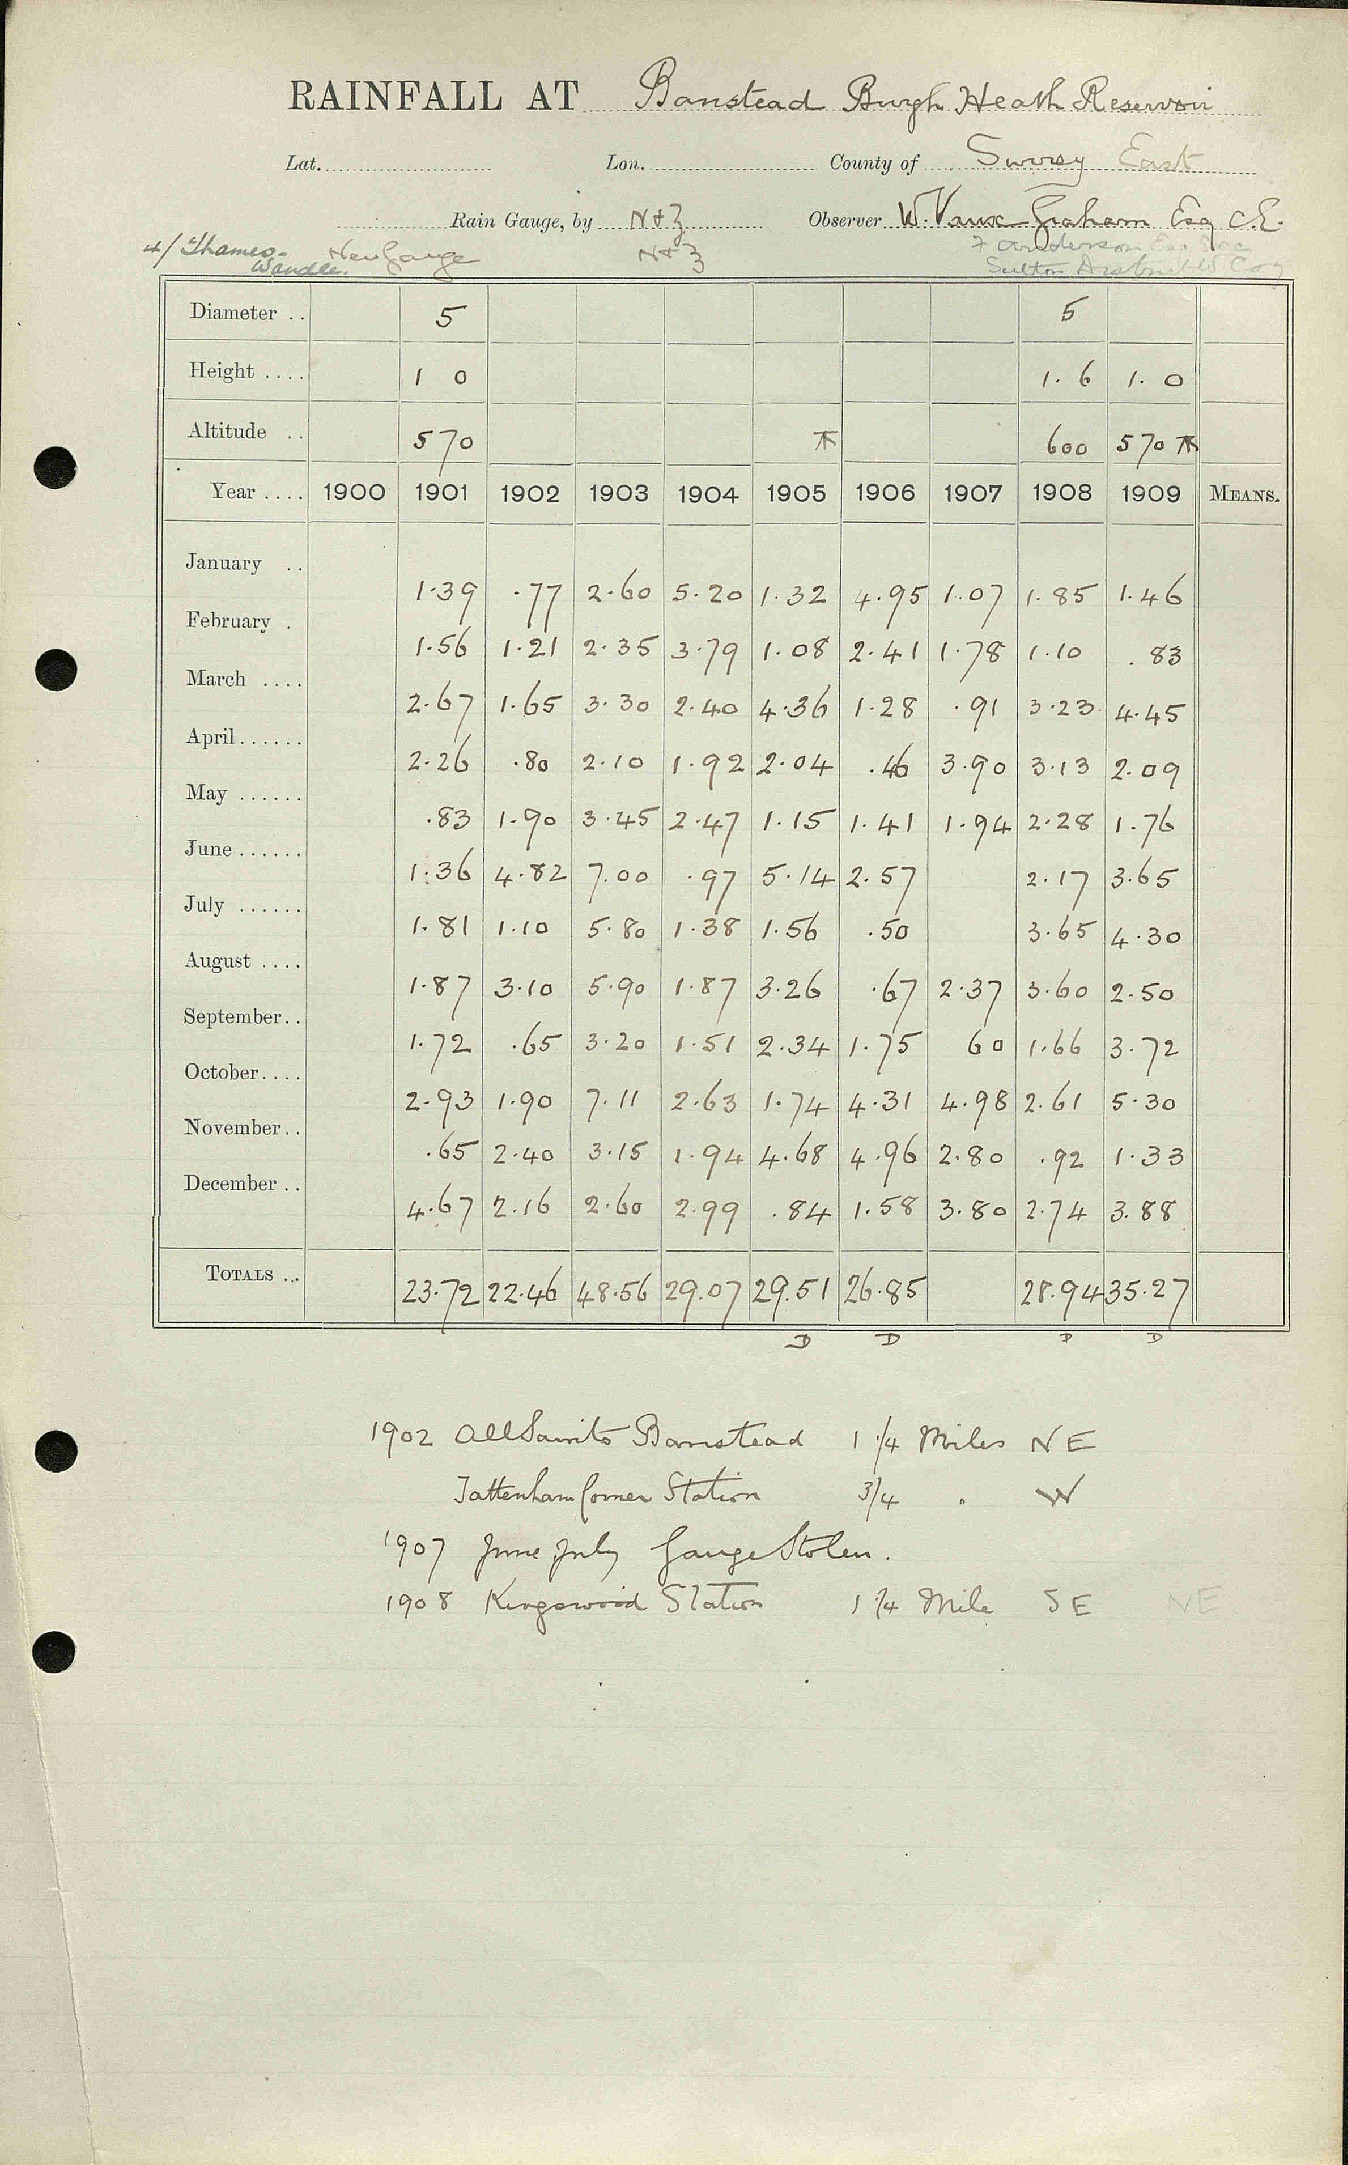 RAINFALL AT Banstead Burgh Heath Reservoir
Lat. Lon. County of Surrey East
Rain Gauge, by N+Z Observer W. Vaux Graham Esq C.E.
4/ Thames- New Gauge N+Z F Anderson Esq Sec
Wandle. Sutton District W Coy
Diameter .. 5 5
Height .... 1 0 1. 6 1. 0
Altitude .. 570 600 570
Year .... 1900 1901 1902 1903 1904 1905 1906 1907 1908 1909 MEANS.
January .. 1.39 .77 2.60 5.20 1.32 4.95 1.07 1.85 1.46
February . 1.56 1.21 2.35 3.79 1.08 2.41 1.78 1.10 .83
March .... 2.67 1.65 3.30 2.40 4.36 1.28 .91 3.23 4.45
April...... 2.26 .80 2.10 1.92 2.04 .46 3.90 3.13 2.09
May ...... .83 1.90 3.45 2.47 1.15 1.41 1.94 2.28 1.76
June ...... 1.36 4.82 7.00 .97 5.14 2.57 2.17 3.65
July ...... 1.81 1.10 5.80 1.38 1.56 .50 3.65 4.30
August .... 1.87 3.10 5.90 1.87 3.26 .67 2.37 3.60 2.50
September.. 1.72 .65 3.20 1.51 2.34 1.75 60 1.66 3.72
October.... 2.93 1.90 7.11 2.63 1.74 4.31 4.98 2.61 5.30
November.. .65 2.40 3.15 1.94 4.68 4.96 2.80 .92 1.33
December .. 4.67 2.16 2.60 2.99 .84 1.58 3.80 2.74 3.88
TOTALS ... 23.72 22.46 48.56 29.07 29.51 26.85 28.94 35.27
D D D D
1902 All Saints Banstead 1 1/4 Miles NE
Tattenham Corner Station 3/4 . W
1907 June July Gauge Stolen.
1908 Kingswood Station 1 1/4 Mile SE NE